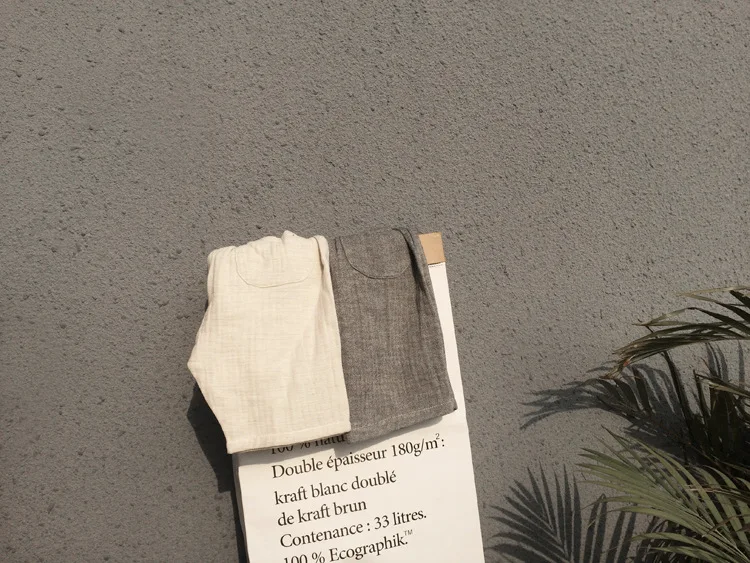 100 % natu
Double épaisseur 180g/m²:
kraft blanc doublé
de kraft brun
Contenance : 33 litres.
100 % Ecographik.™